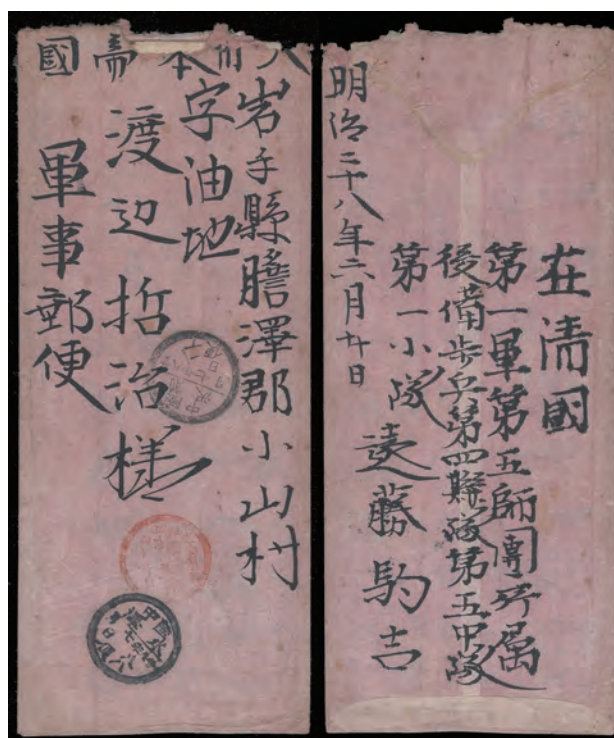 大日本帝國
岩手縣膽澤郡小山村
字油地
渡辺哲治様
軍事郵便
在清國
第一軍第五師團所属
後備歩兵第四聯隊第五中隊
第一小隊
遠藤駒吉
明治二十八年六月廿日